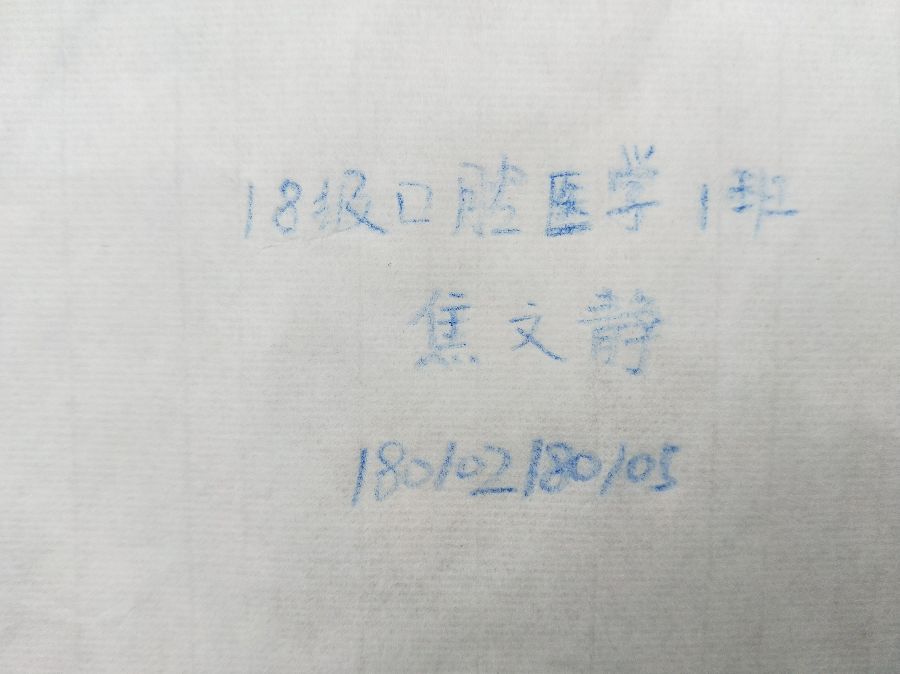 18级口腔医学1班
焦文静
180102180105